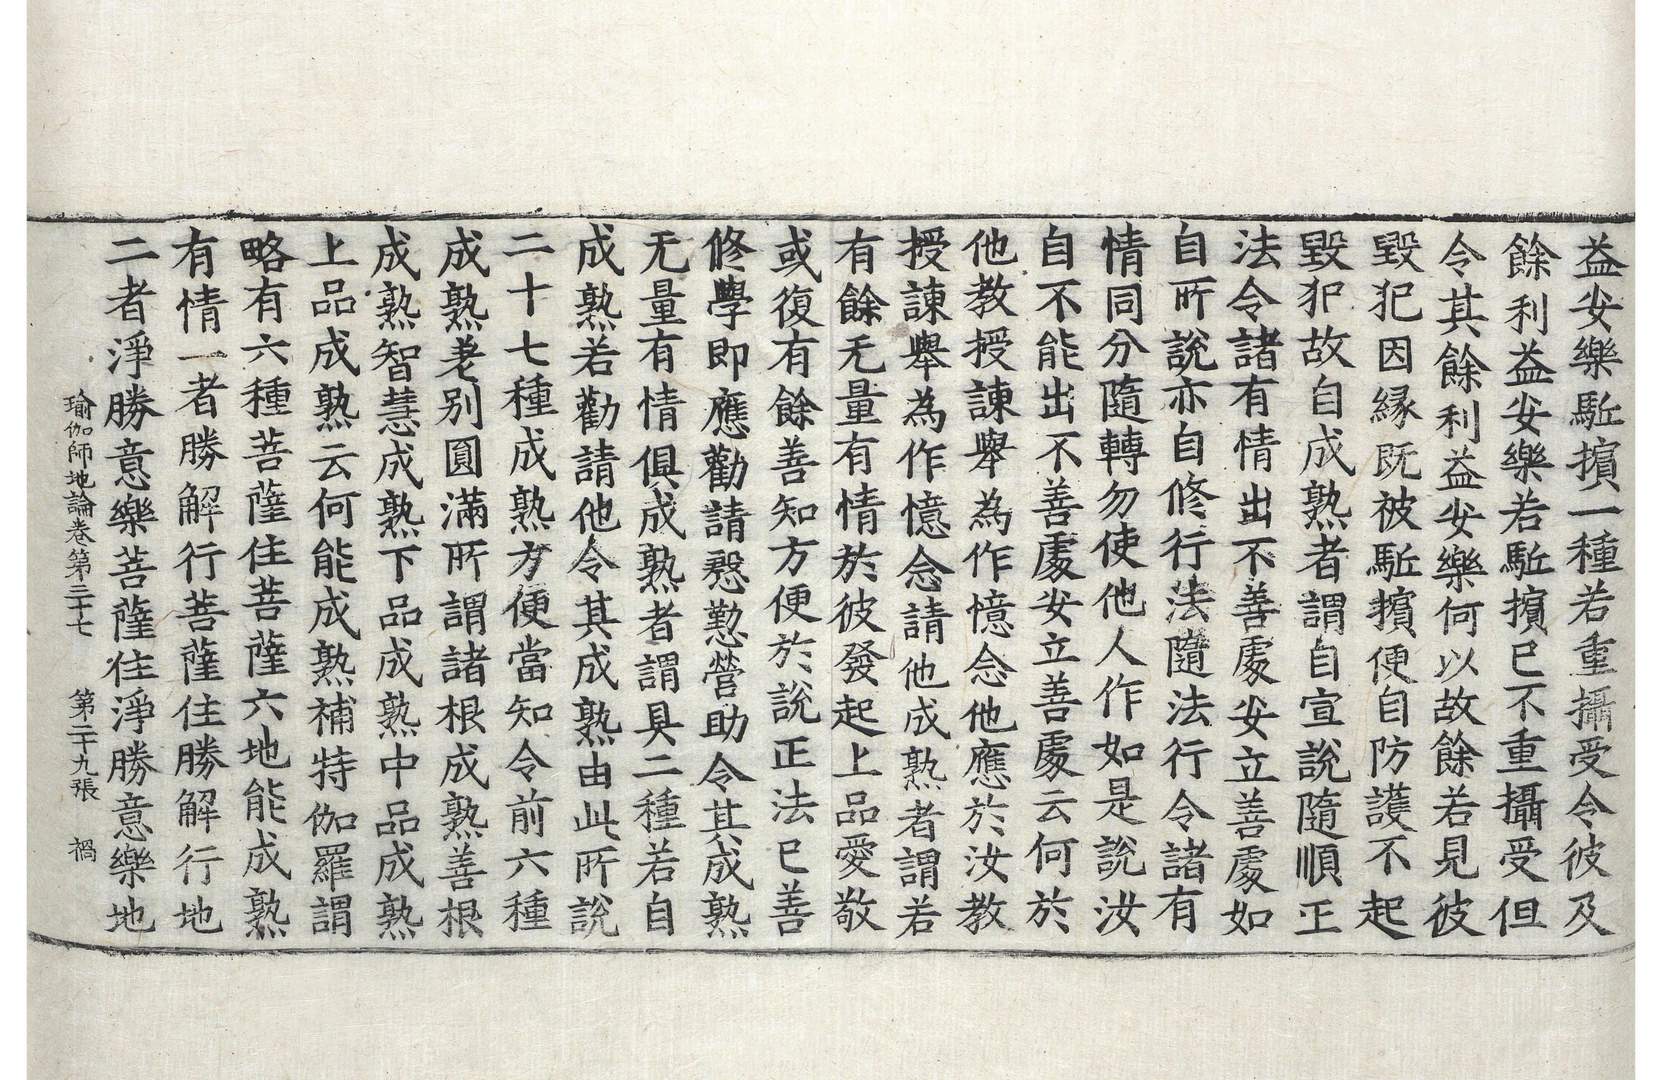 益安樂駈擯一種若重攝受令彼及
餘利益安樂若駈擯已不重攝受但
令其餘利益安樂何以故餘若見彼
毀犯因縁既被駈擯便自防護不起
毀犯故自成熟者謂自宣說隨順正
法令諸有情出不善處安立善處如
自所說亦自修行法隨法行令諸有
情同分隨轉勿使他人作如是說汝
自不能出不善處安立善處云何於
他教授諫舉為作憶念他應於汝教
授諫舉為作憶念請他成熟者謂若
有餘无量有情於彼發起上品愛敬
或復有餘善知方便於說正法已善
修學即應勸請慇懃營助令其成熟
无量有情俱成熟者謂具二種若自
成熟若勸請他令其成熟由此所說
二十七種成熟方便當知令前六種
成熟差別圓滿所謂諸根成熟善根
成熟智慧成熟下品成熟中品成熟
上品成熟云何能成熟補特伽羅謂
略有六種菩薩住菩薩六地能成熟
有情一者勝解行菩薩住勝解行地
二者淨勝意樂菩薩住淨勝意樂地
瑜伽師地論卷第三十七 第二十九張 禍